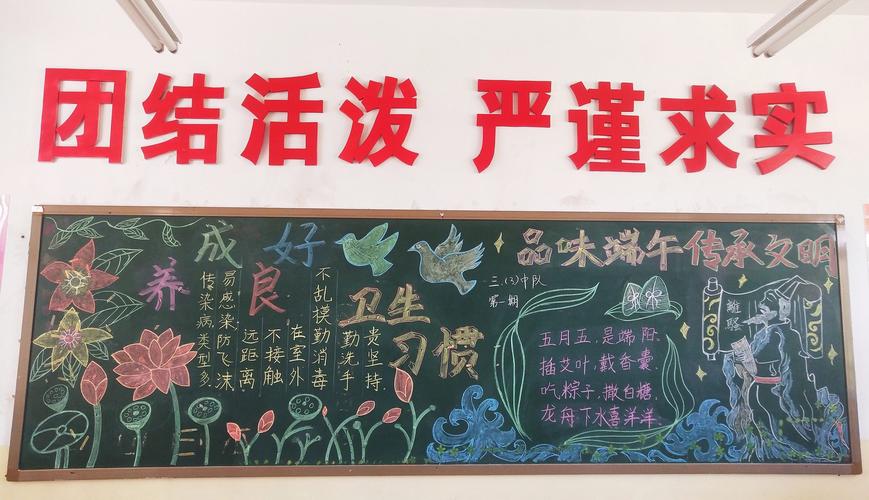 团结活泼 严谨求实
养成良好
卫生
习惯
传染病类型多
易感染防飞沫
远距离
不接触
在室外
不乱摸勤消毒
勤洗手
贵坚持.
品味端午传承文明
三.(3)中队
第一期
五月五,是端阳.
插艾叶,戴香囊.
吃粽子,撒白糖.
龙舟下水喜洋洋.
離騷